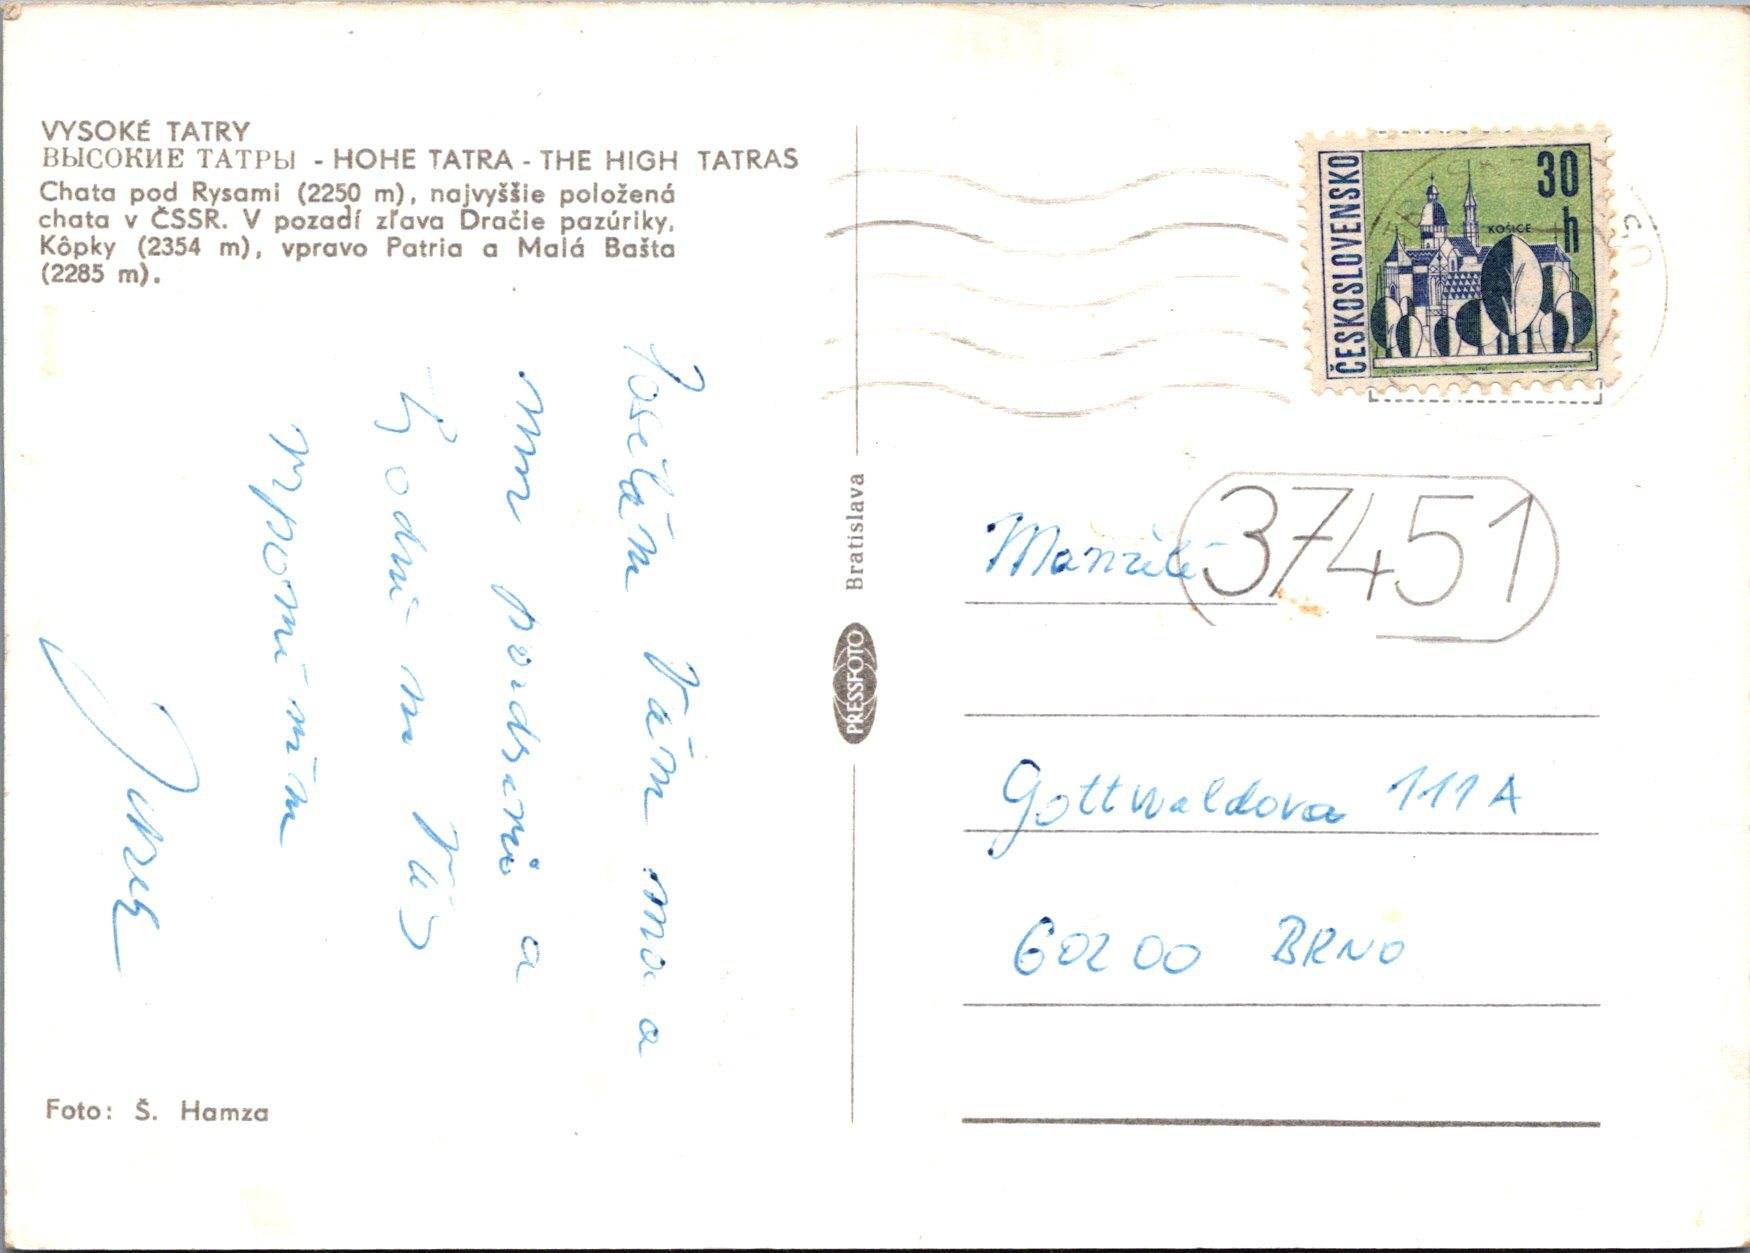 VYSOKÉ TATRY
ВЫСОКИЕ ТАТРЫ - HOHE TATRA - THE HIGH TATRAS
Chata pod Rysami (2250 m), najvyššie položená
chata v ČSSR. V pozadí zľava Dračie pazúriky,
Kôpky (2354 m), vpravo Patria a Malá Bašta
(2285 m).
Posílám Vám a
pozdravů a
hodně na Vás
vzpomínám
Foto: Š. Hamza
Bratislava
PRESSFOTO
ČESKOSLOVENSKO
30
h
KOŠICE
37451
Gottwaldova 111A
60200 BRNO